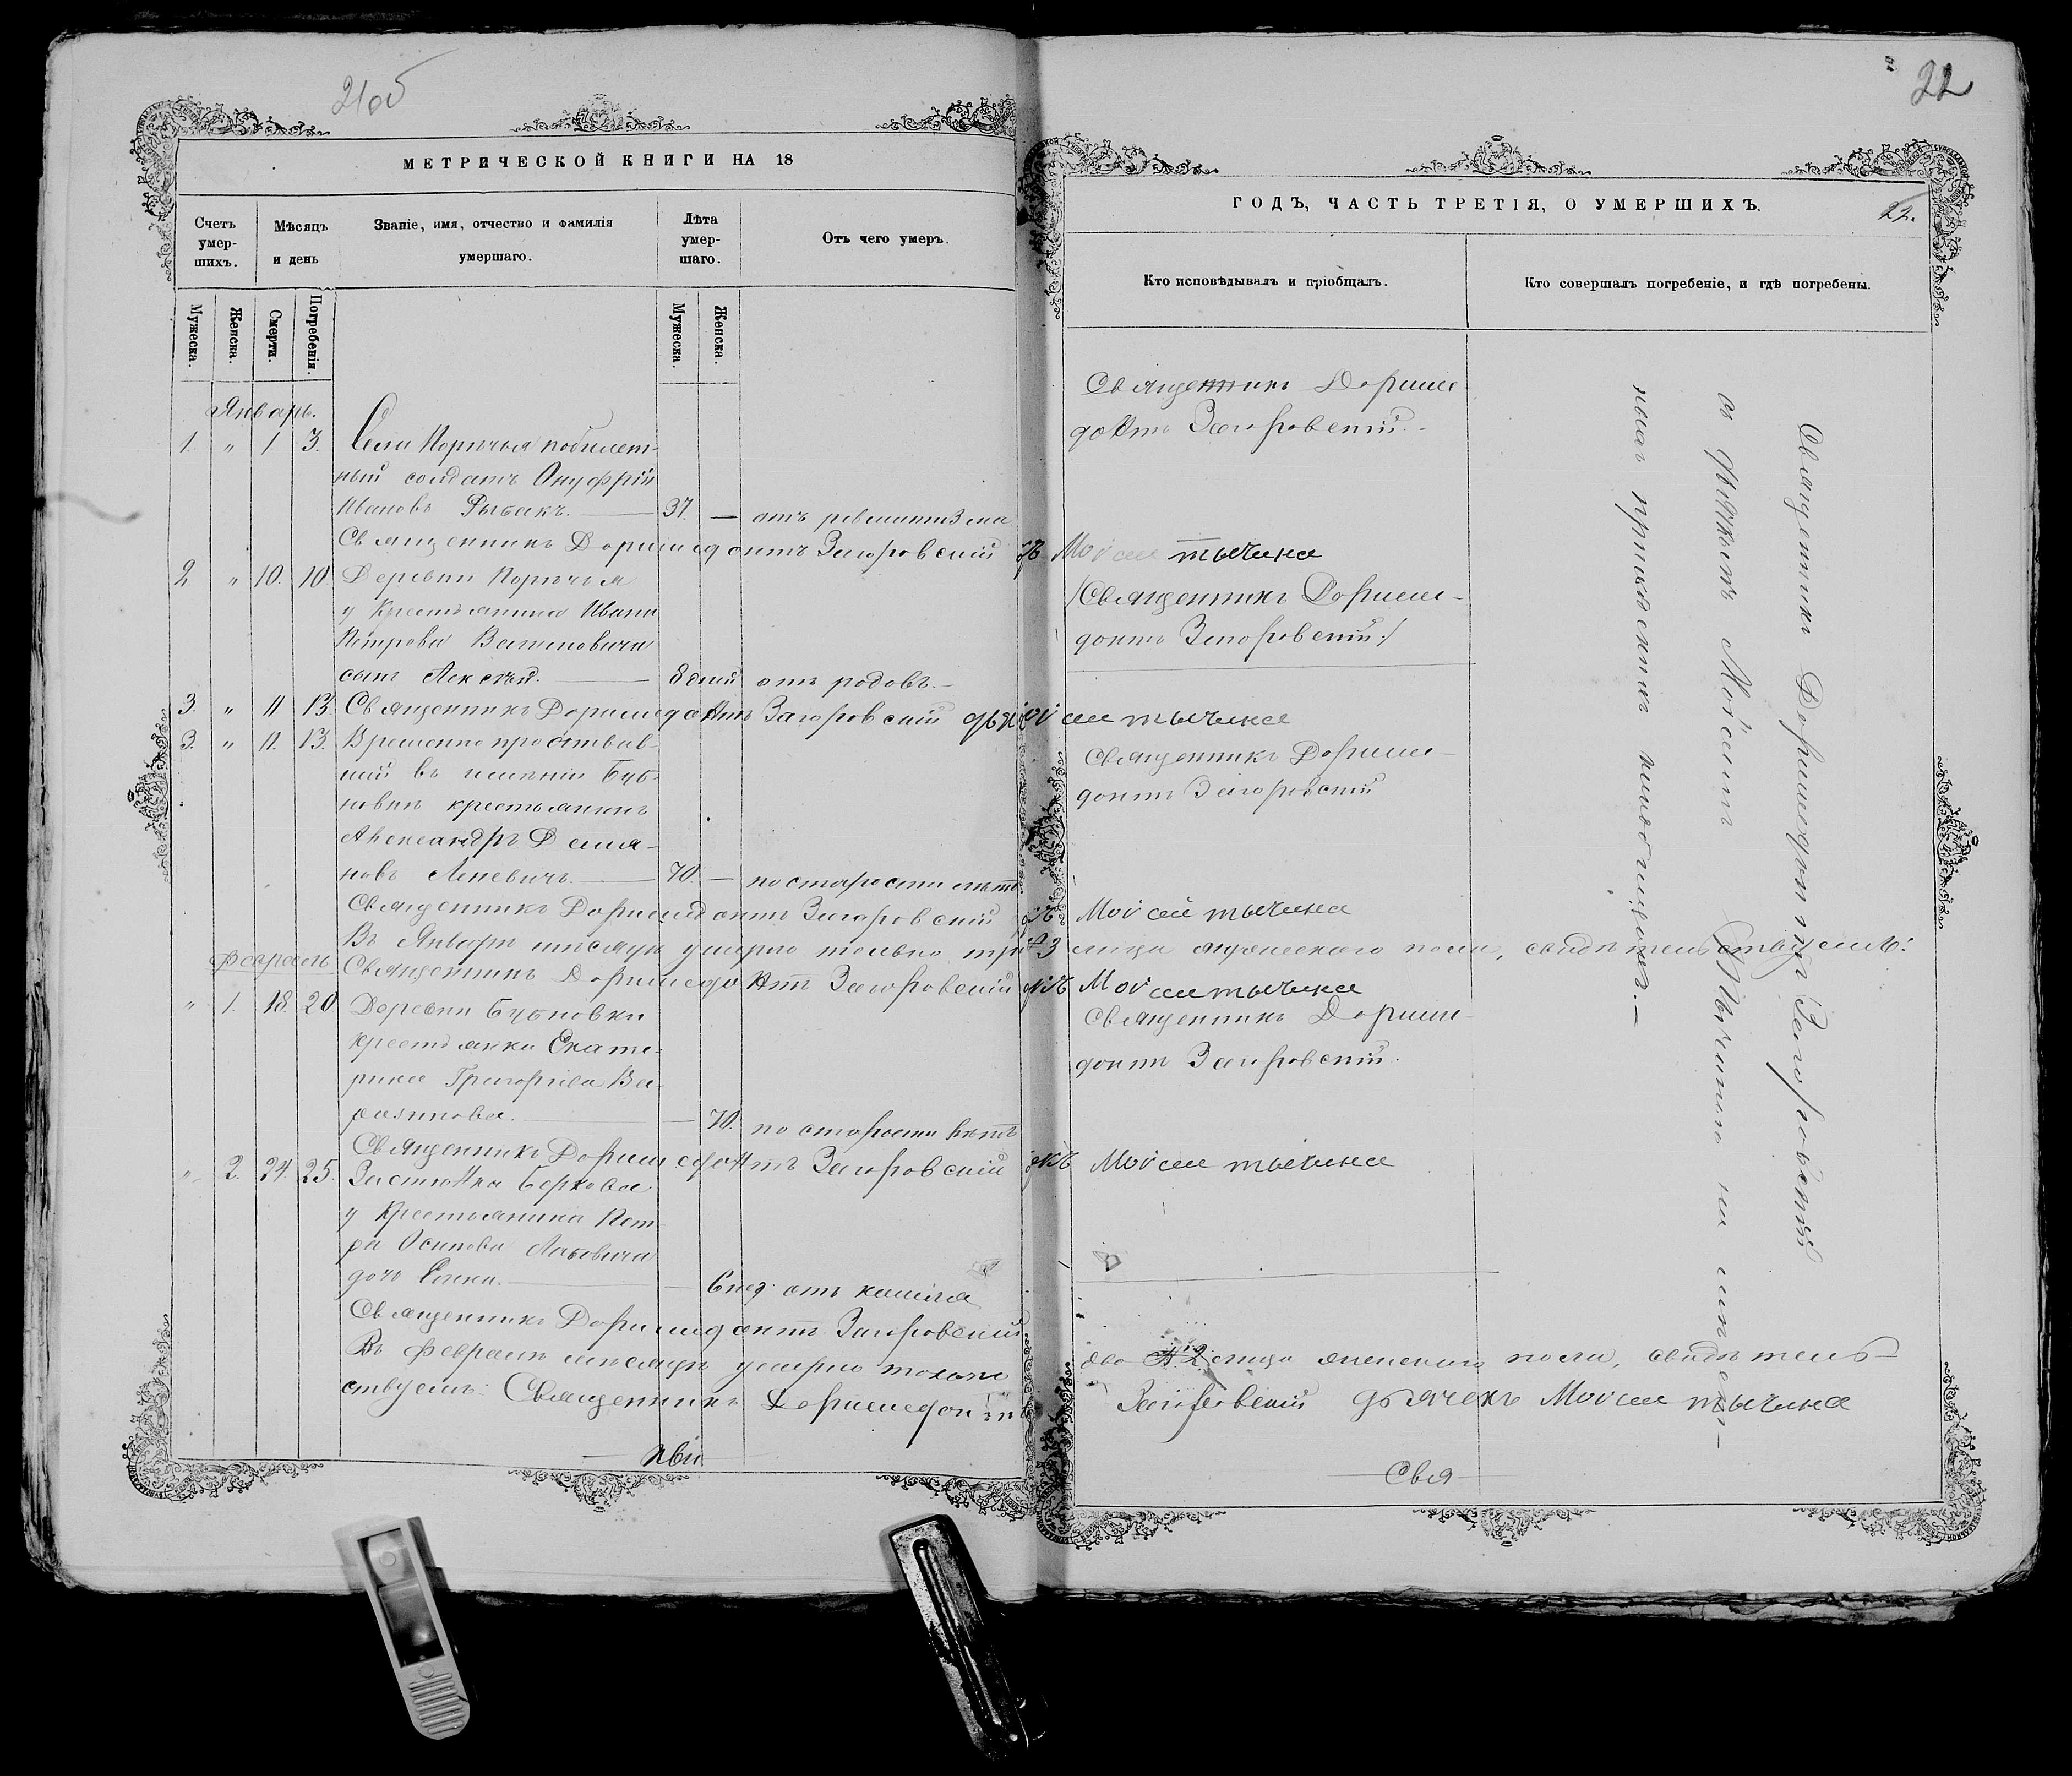 21об
МЕТРИЧЕСКОЙ КНИГИ НА 18
Счетъ умер-шихъ.
Мѣсяцъ и день
Званіе, имя, отчество и фамилія умершаго.
Лѣта умер-шаго.
Отъ чего умеръ.
Мужеска.
Женска.
Смерти.
Погребенія.
Мужеска.
Женска.
Январь.
1. " 1 3. Села Порѣчья побилет-
ный солдатъ Онуфрій
Ивановъ Рыбакъ. — 37. — отъ ревматизма
Священникъ Доримедонтъ Загоровскій Моисей тычина
2 " 10. 10 Деревни Порѣчья
у Крестьянина Ивана
Петрова
сынъ Алексѣй. — 8 дней отъ родовъ.—
3. " 11 13. Священникъ Доримедонтъ Загоровскій тычина
3. " 11. 13. Временно
въ имѣніи Буб-
новки крестьянинъ
Александръ Демья-
новъ — 70. — по старости лѣтъ
Священникъ Доримедонтъ Загоровскій Моисей тычина
Въ Январѣ мѣсяцѣ умерло только три 3 лица мужескаго пола, свидѣтельствуемъ:
Февраль. Священникъ Доримедонтъ Загоровскій Моисей тычина
" 1. 18. 20 Деревни Бубновки
крестьянка Екате-
рина Григорьева
— 70. по старости лѣтъ
Священникъ Доримедонтъ Загоровскій Моисей тычина
" 2. 24. 25. Застѣнка
у Крестьянина Пет-
ра Осипова
дочь Елена. — 6 нед. отъ кашля
Священникъ Доримедонтъ Загоровскій
Въ Февралѣ мѣсяцѣ умерло только два 2 лица женскаго пола, свидѣтель-
ствуемъ: Священникъ Доримедонтъ Загоровскій дьячекъ Моисей тычина
22
ГОДЪ, ЧАСТЬ ТРЕТІЯ, О УМЕРШИХЪ.
22.
Кто исповѣдывалъ и пріобщалъ.
Кто совершалъ погребеніе, и гдѣ погребены.
Священникъ Дориме-
донтъ Загоровскій.
/Священникъ Дориме-
донтъ Загоровскій:/
Священникъ Дориме-
донтъ Загоровскій
Священникъ Дориме-
донтъ Загоровскій.
Священникъ Доримедонтъ Загоровскій
съ дьячкомъ Моисеемъ Тычиною на мѣст-
номъ приходскомъ кладбищѣ.—
Свя